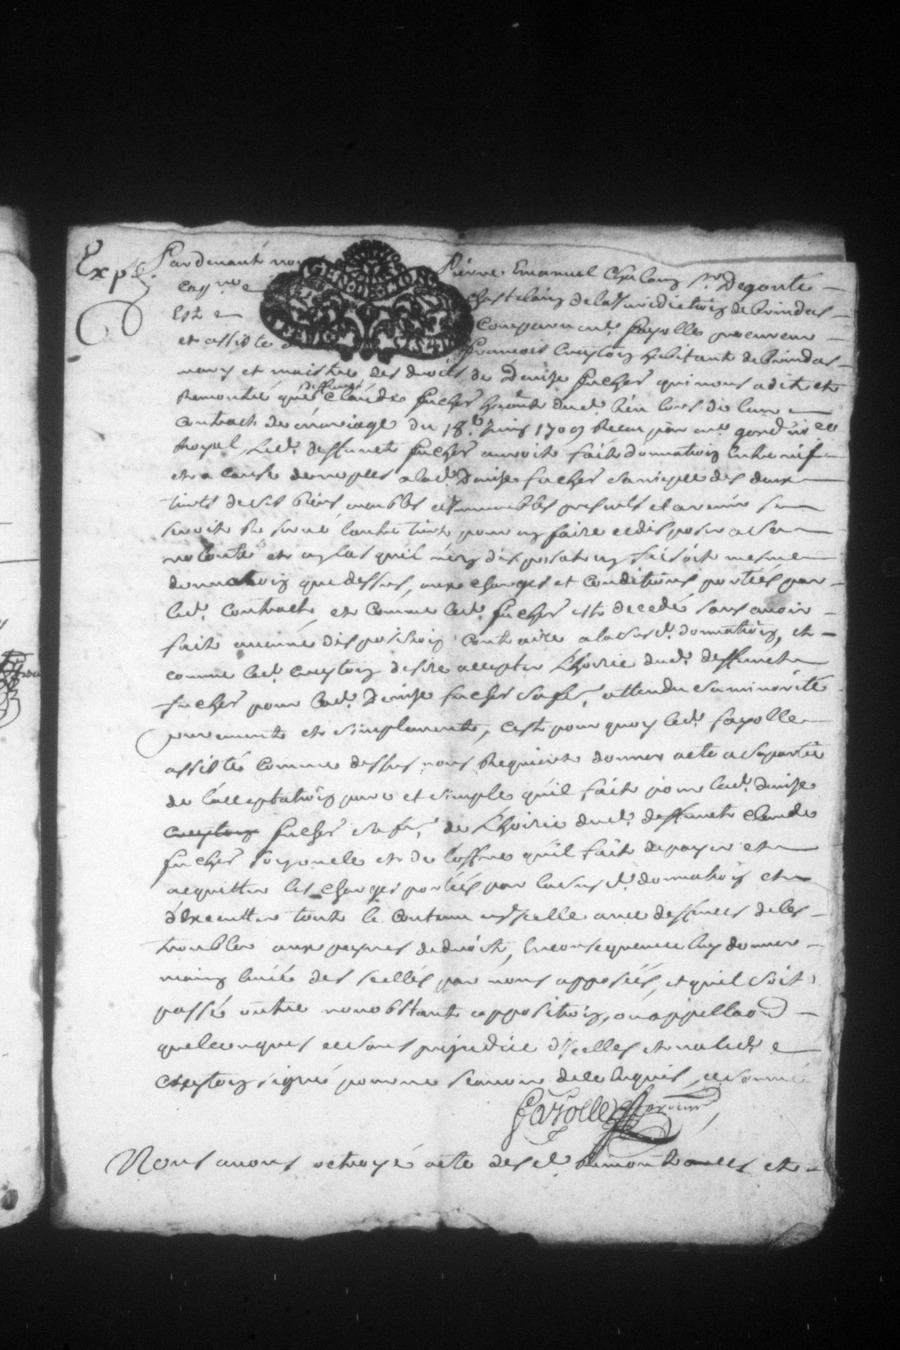 Exp.e Pardevant nous Pierre Emanuel Chalony Sr. Degoutte
chastelain de la Jurisdiction de Brindas
Est Comparant Fayolle procureur
et assisté de François Cuzton habitant de Brindas
mary et maistre des droits de Denise fucher qui nous a dit et
Remontré que deffunt Claude fucher dud. lieu lors de leur
Contract de mariage du 18e Juin 1709 Receu par me
Royal, led. deffunct fucher auroit fait donnation entre vif
et a cause de nopces a lad. Denise fucher sa niepce des deux
tiers de ses biens, meubles et immeubles presents et avenir se
reservé l'autre tiers pour en faire et disposer a sa
volonté et en cas qu'il n'en disposat en faisoit mesme
donnation que dessus, aux charges et conditions portées par
led. contract, et comme led. fucher est decedé sans avoir
fait aucune disposition contraire a lasusd. donnation, et
comme led. Cuzton desire accepter l'hoirie dud. deffunct
fucher pour lad. Denise fucher sa fe. attendu sa minorité
purement et simplement, c'est pourquoy led. fayolle
assisté comme dessus nous Requiert donner acte a sa partie
de l'acceptation pure et simple qu'il fait pour lad. Denise
fucher sa fe. de l'hoirie dud. deffunct claude
fucher son oncle et de l'offre qu'il fait de payer et
acquitter les charges portées par lasusd. donnation et
d'executter tout le contenu en icelle avec deffences de les
troubler aux peynes de droit, en consequence luy donner
main levée des scellés par nous apposées, et qu'il soit
passé outre nonobstant opposition, ou appellaon
quelconques et sans prejudice d'icelles et na led.
Cuzton signé pour ne scavoir de ce enquis, et sommé
Fayolle
Nous avons octroyé acte desd. Remontrances et